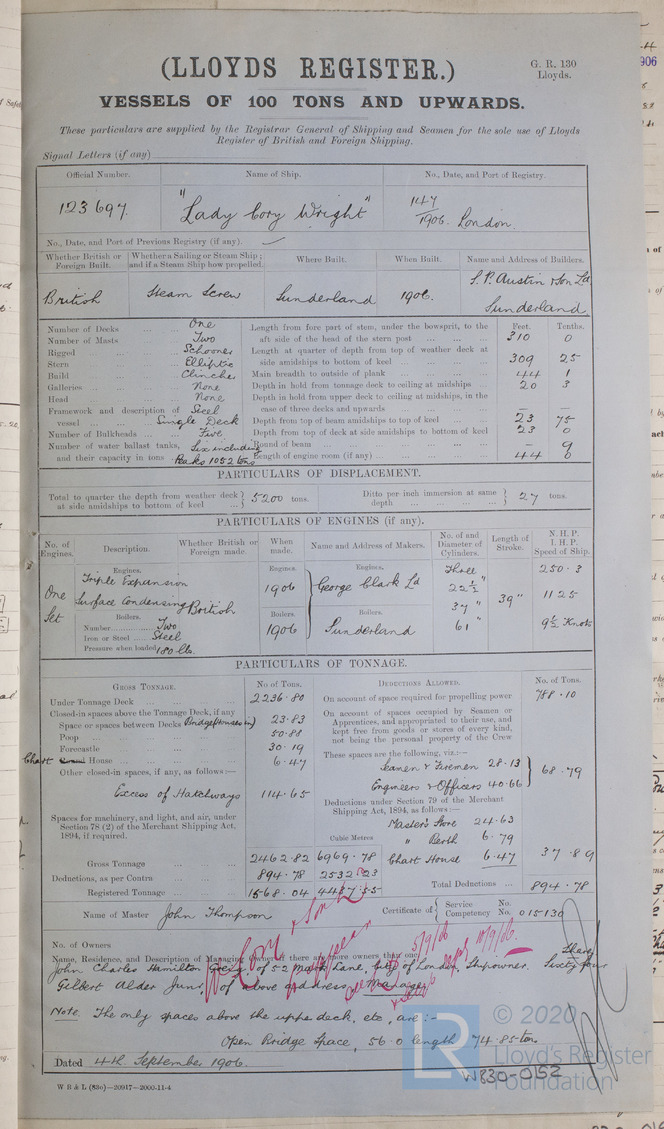 (LLOYDS REGISTER.)
G. R. 130
Lloyds.
VESSELS OF 100 TONS AND UPWARDS.
These particulars are supplied by the Registrar General of Shipping and Seamen for the sole use of Lloyds
Register of British and Foreign Shipping.
Signal Letters (if any)
Official Number. Name of Ship. No., Date, and Port of Registry.
123697. "Lady Cory Wright" 147/1906. London.
No., Date, and Port of Previous Registry (if any).
Whether British or Foreign Built. Whether a Sailing or Steam Ship; and if a Steam Ship how propelled. Where Built. When Built. Name and Address of Builders.
British Steam Screw Sunderland 1906. S. P. Austin & Son Ld
Sunderland
Number of Decks One
Number of Masts Two
Rigged Schooner
Stern Elliptic
Build Clincher
Galleries None
Head None
Framework and description of vessel Steel Single Deck
Number of Bulkheads Five
Number of water ballast tanks, and their capacity in tons Six including Peaks 1052 tons
Feet. Tenths.
Length from fore part of stem, under the bowsprit, to the aft side of the head of the stern post 310 0
Length at quarter of depth from top of weather deck at side amidships to bottom of keel 309 25
Main breadth to outside of plank 44 1
Depth in hold from tonnage deck to ceiling at midships 20 3
Depth in hold from upper deck to ceiling at midships, in the case of three decks and upwards — —
Depth from top of beam amidships to top of keel 23 75
Depth from top of deck at side amidships to bottom of keel 23 0
Round of beam — 9
Length of engine room (if any) 44 0
PARTICULARS OF DISPLACEMENT.
Total to quarter the depth from weather deck at side amidships to bottom of keel 5200 tons. Ditto per inch immersion at same depth 27 tons.
PARTICULARS OF ENGINES (if any).
No. of Engines. Description. Whether British or Foreign made. When made. Name and Address of Makers. No. of and Diameter of Cylinders. Length of Stroke. N.H.P. I.H.P. Speed of Ship.
One Set
Engines. Triple Expansion Surface Condensing British
Engines. 1906
Engines. George Clark Ld
Three 22½" 37" 61" 39" 250.3 1125 9½ Knots
Boilers. Number Two
Iron or Steel Steel
Pressure when loaded 180 lbs.
Boilers. 1906
Boilers. Sunderland
PARTICULARS OF TONNAGE.
GROSS TONNAGE. No of Tons.
Under Tonnage Deck 2236.80
Closed-in spaces above the Tonnage Deck, if any
Space or spaces between Decks 23.83
Poop 50.88
Forecastle 30.19
Chart House 6.47
Other closed-in spaces, if any, as follows:—
Excess of Hatchways 114.65
Spaces for machinery, and light, and air, under Section 78 (2) of the Merchant Shipping Act, 1894, if required.
Cubic Metres
Gross Tonnage 2462.82 6969.78
Deductions, as per Contra 894.78 2532.23
Registered Tonnage 1568.04 4437.55
DEDUCTIONS ALLOWED. No. of Tons.
On account of space required for propelling power 788.10
On account of spaces occupied by Seamen or Apprentices, and appropriated to their use, and kept free from goods or stores of every kind, not being the personal property of the Crew
These spaces are the following, viz.:—
Seamen & Firemen 28.13
Engineers & Officers 40.66
68.79
Deductions under Section 79 of the Merchant Shipping Act, 1894, as follows:—
Master's Store 24.63
" Berth 6.79
Chart House 6.47
37.89
Total Deductions 894.78
Name of Master John Thompson Certificate of Service No. Competency No. 015130
No. of Owners
Name, Residence, and Description of Managing Owner if there are more owners than one
John Charles Hamilton Greig of 52 Mark Lane, City of London, Shipowner. Sixty four Shares
Gilbert Alder Junr, of above address, Manager
5/9/06 10/9/06.
Note. The only spaces above the upper deck, etc, are:—
Open Bridge Space, 56.0 length 74.85 tons
Dated 4th September 1906.
W B & L (83o)—20917—2000-11-4
W830-0152
LR
© 2020
Lloyd's Register
Foundation